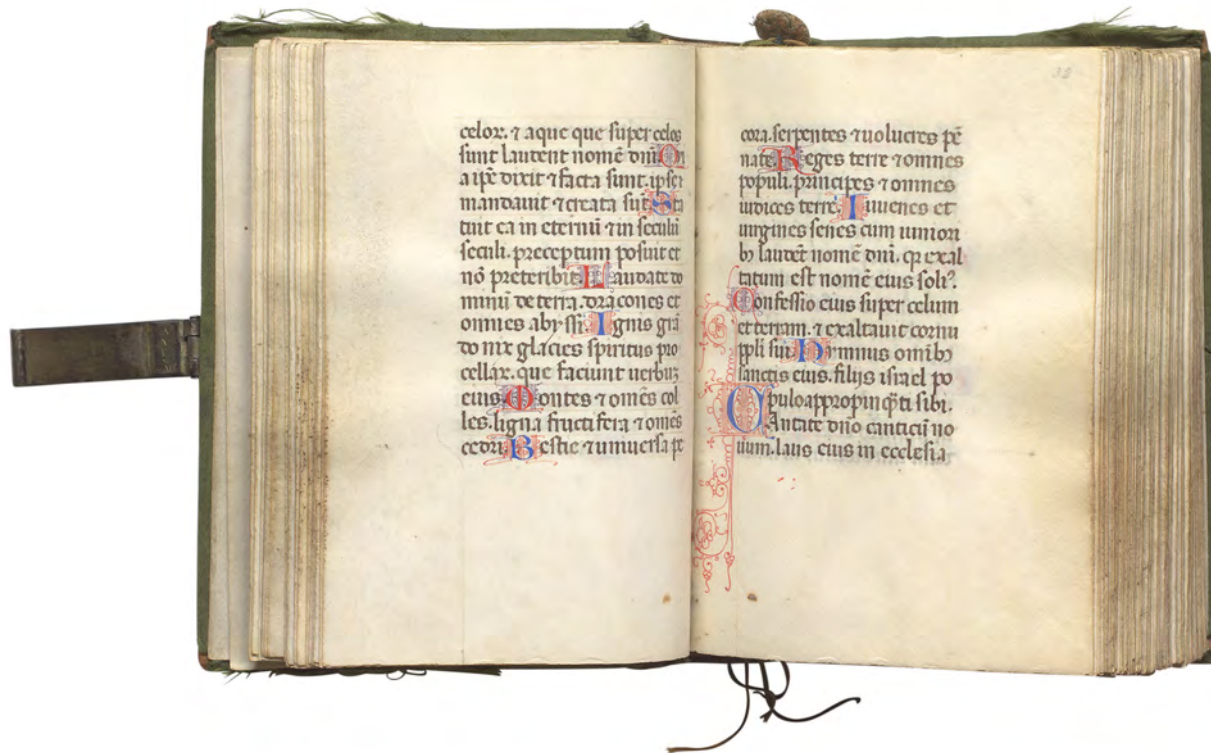 celoꝝ. ⁊ aque que super celos
sunt laudent nomē dn̄i. Qn̄
a ip̄e dixit ⁊ facta sunt. ipse
mandauit ⁊ creata sūt. Sta
tuit ea in eternū ⁊ in seculū
seculi. preceptum posuit et
nō preteribit. Laudate do
minū de terra. dracones et
omnes abyssi. Ignis grā
do nix glacies spiritus pro
cellaꝝ. que faciunt uerbuꝫ
eius. Montes ⁊ om̄es col
les. ligna fructifera ⁊ om̄es
cedri. Bestie ⁊ uniuersa pe
32
cora. serpentes ⁊ uolucres pē
nate. Reges terre ⁊ omnes
populi. principes ⁊ omnes
iudices terre. Iuuenes et
uirgines senes cum iuniori
bꝫ laudēt nomē dn̄i. qꝛ exal
tatum est nomē eius soliꝰ.
Confessio eius super celum
et terram. ⁊ exaltauit cornu
ppli sui. Hymnus om̄ibꝫ
sanctis eius. filijs israel po
pulo appropinq̄ti sibi.
CAntate dn̄o canticū no
uum. laus eius in ecclesia